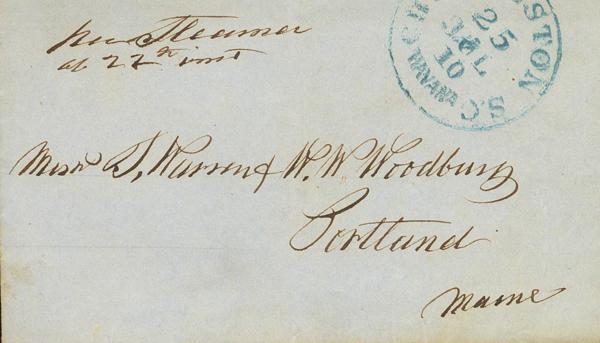 per Steamer
of 22th inst
CHARLESTON S.C.
25
JUL
10
HAVANA
Messrs S, Warren & W. W. Woodbury
Portland
Maine